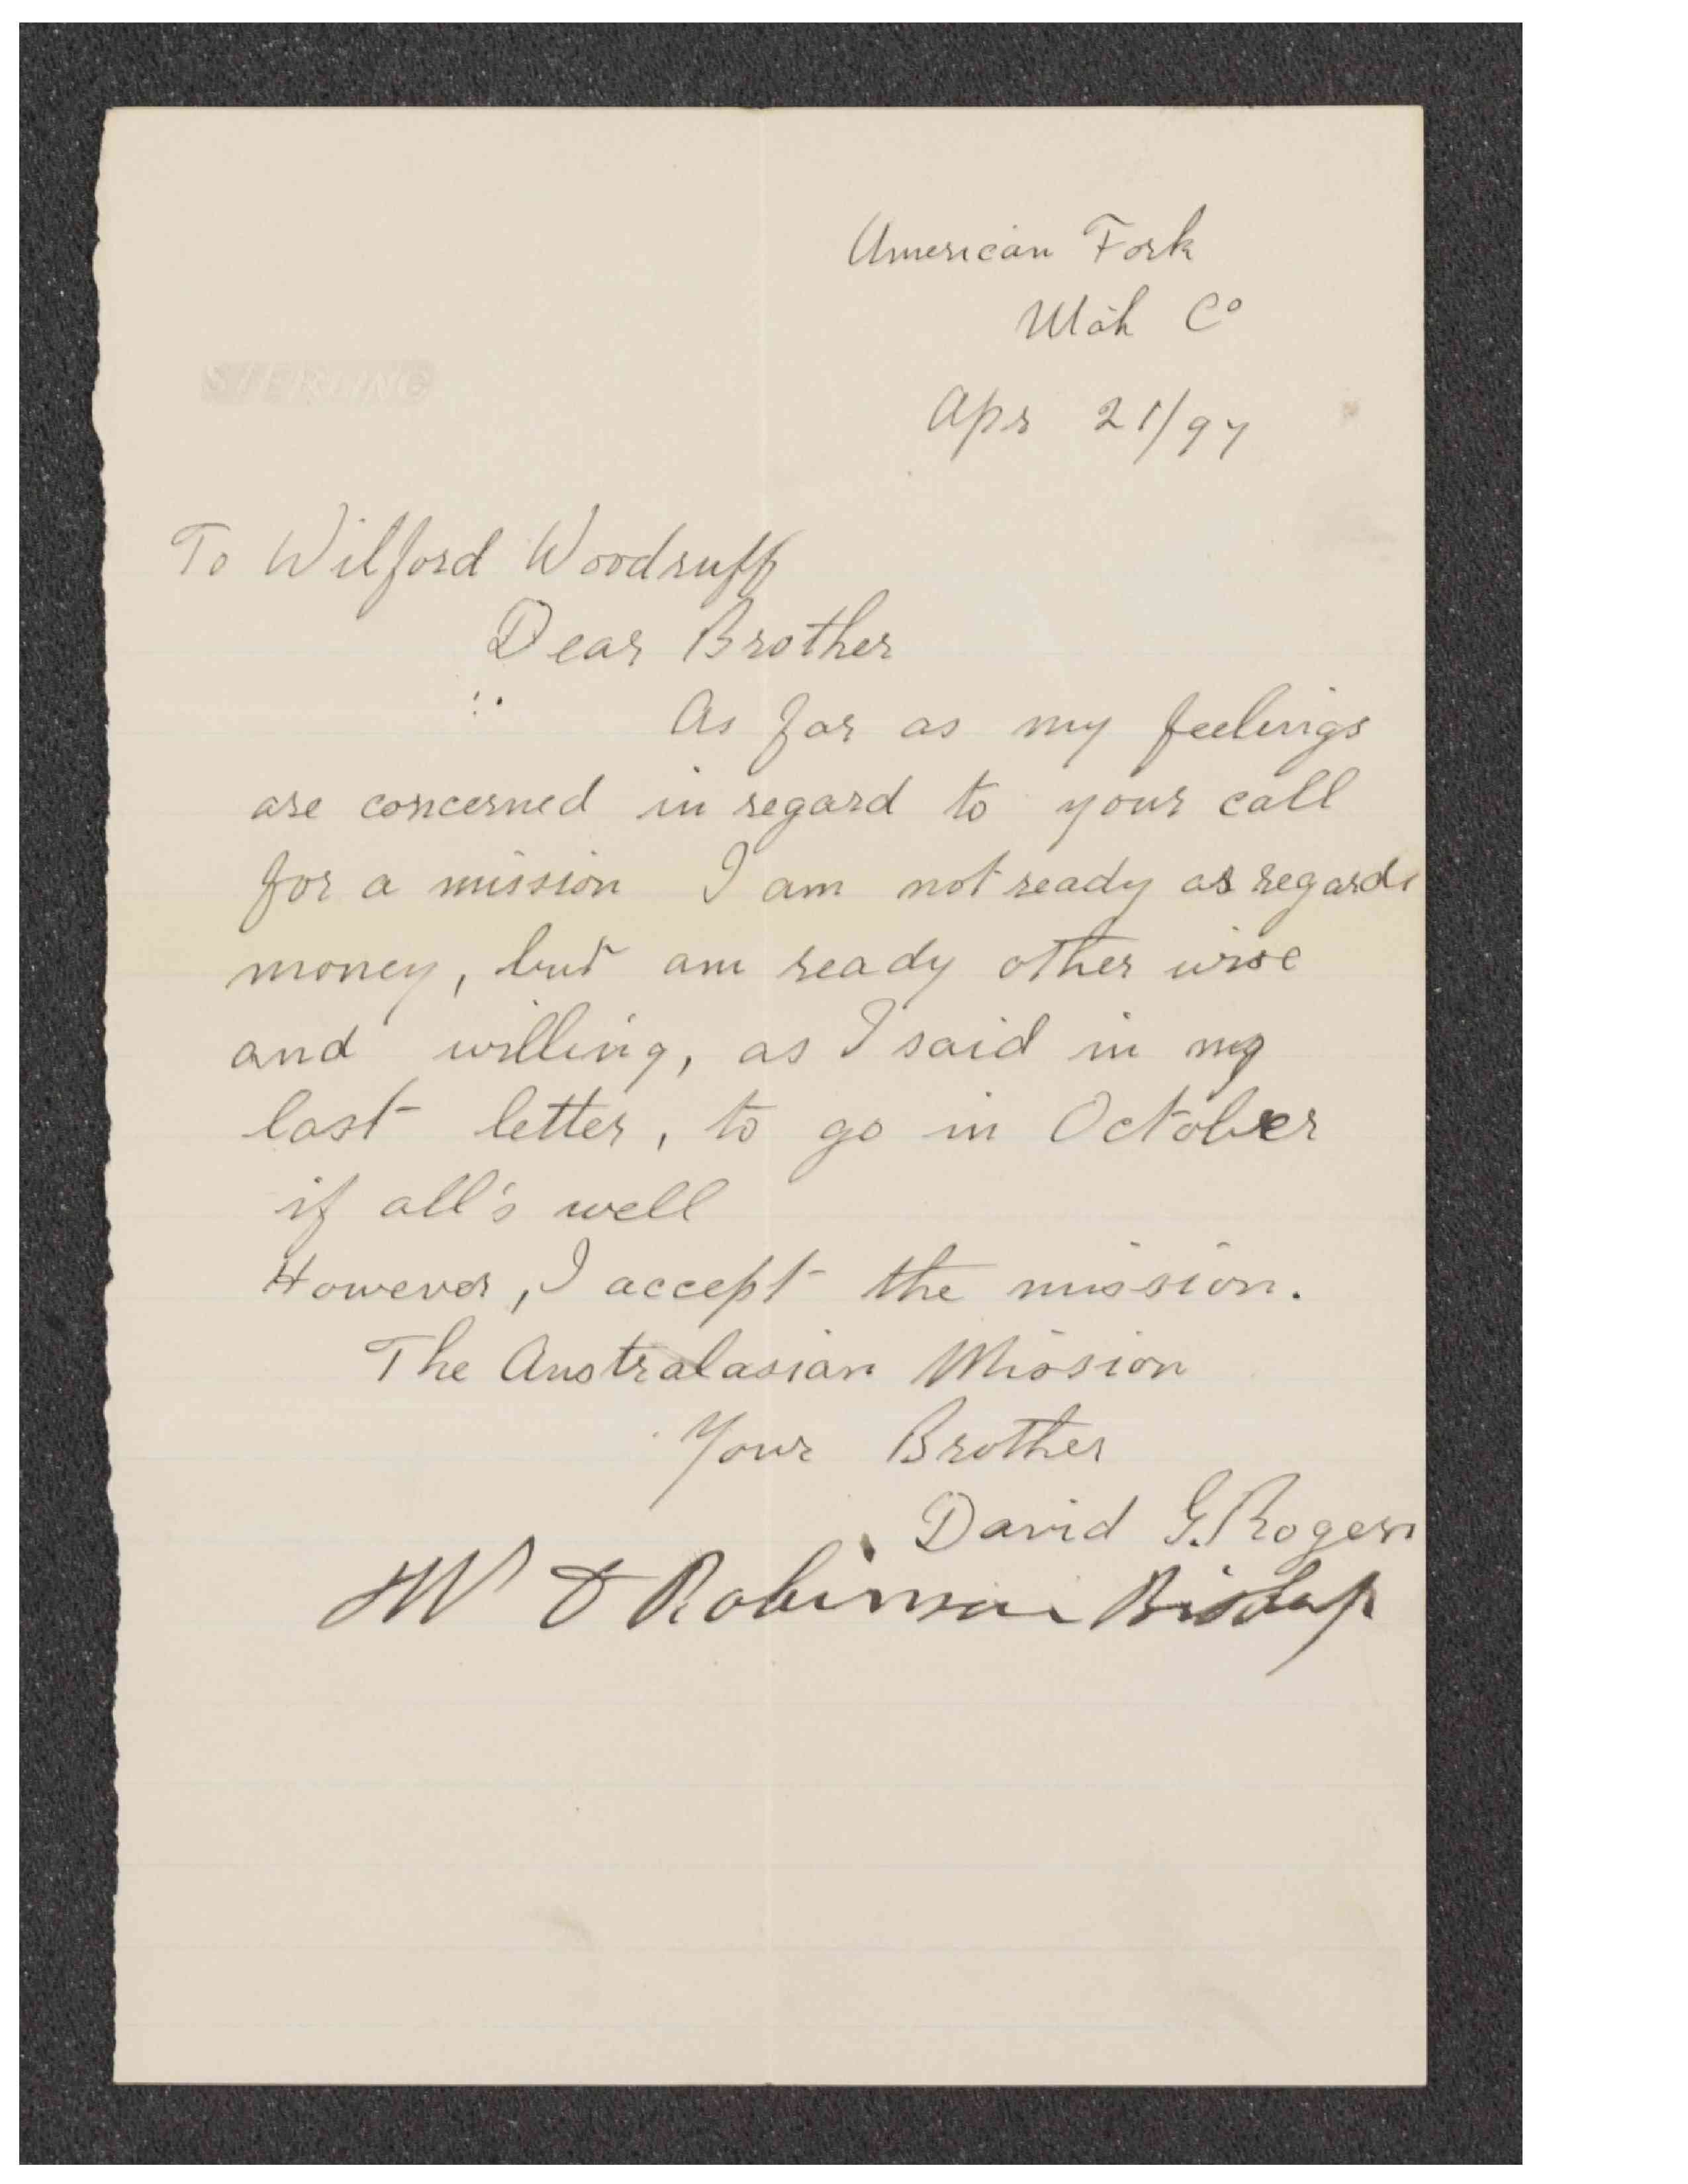 American Fork
Utah Co
Apr 21/97
STERLING
To Wilford Woodruff
Dear Brother
As far as my feelings
are concerned in regard to your call
for a mission I am not ready as regards
money, but am ready other wise
and willing, as I said in my
last letter, to go in October
if all's well
However, I accept the mission.
The Australasian Mission
Your Brother
David G. Rogers
Robinson Bishop